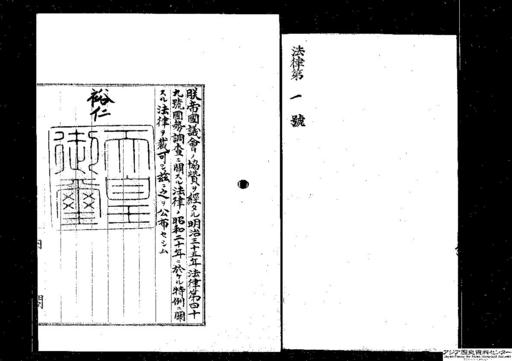 法律第一號
朕帝國議會ノ協贊ヲ經タル明治三十五年法律第四十
九號國勢調査ニ關スル法律ノ昭和二十年ニ於ケル特例ニ關
スル法律ヲ裁可シ茲ニ之ヲ公布セシム
裕仁
天皇
御璽
内閣
アジア歴史資料センター